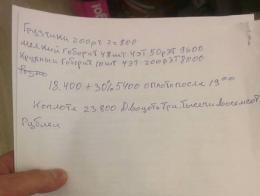 Грузчики 200рч 2ч 800
мелкий Габорит 48шт. 4эт 50рэт 9600
Крупный Габорит 10шт 4эт-200рэт 8000
18.400 + 30% 5400 оплота после 19⁰⁰
К оплоте 23.800 Двацоть Три Тысечи восемсот
Рублей